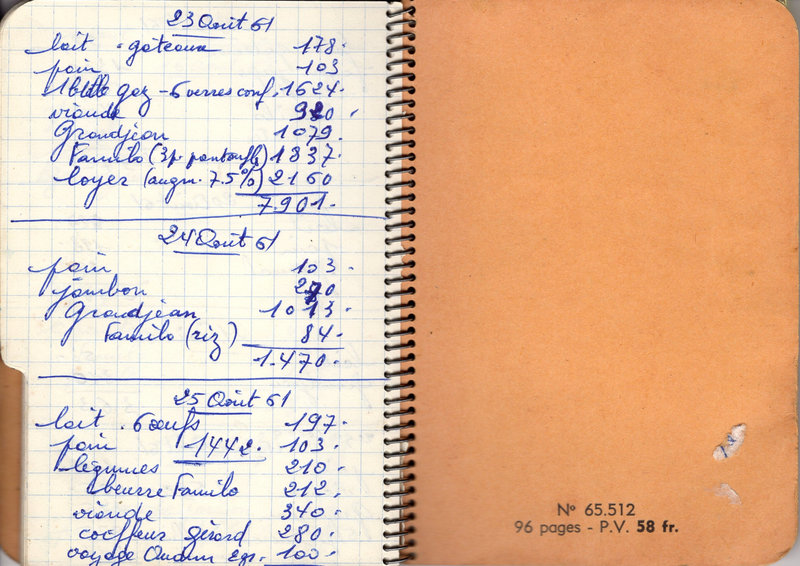 23 Août 61
lait . gâteaux 178.
pain 103
1 btlle gaz - 6 verres conf. 1624.
viande 920.
Grandjean 1079.
Familo (3p. pantoufle) 1837.
loyer (augm. 7.5%) 2160
7.901.
24 Août 61
pain 103.
jambon 270
Grandjean 1013.
Familo (riz) 84.
1.470.
25 Août 61
lait . 6 œufs 197.
pain 1442. 103.
légumes 210.
beurre Familo 212.
viande 340.
coiffeur Gérard 280.
voyage Audun 100.
Nº 65.512
96 pages - P.V. 58 fr.